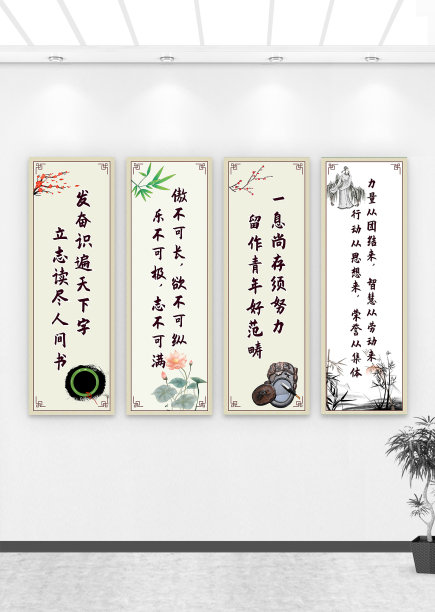 发奋识遍天下字
立志读尽人间书
傲不可长，欲不可纵
乐不可极，志不可满
一息尚存须努力
留作青年好范畴
力量从团结来，智慧从劳动来
行动从思想来，荣誉从集体